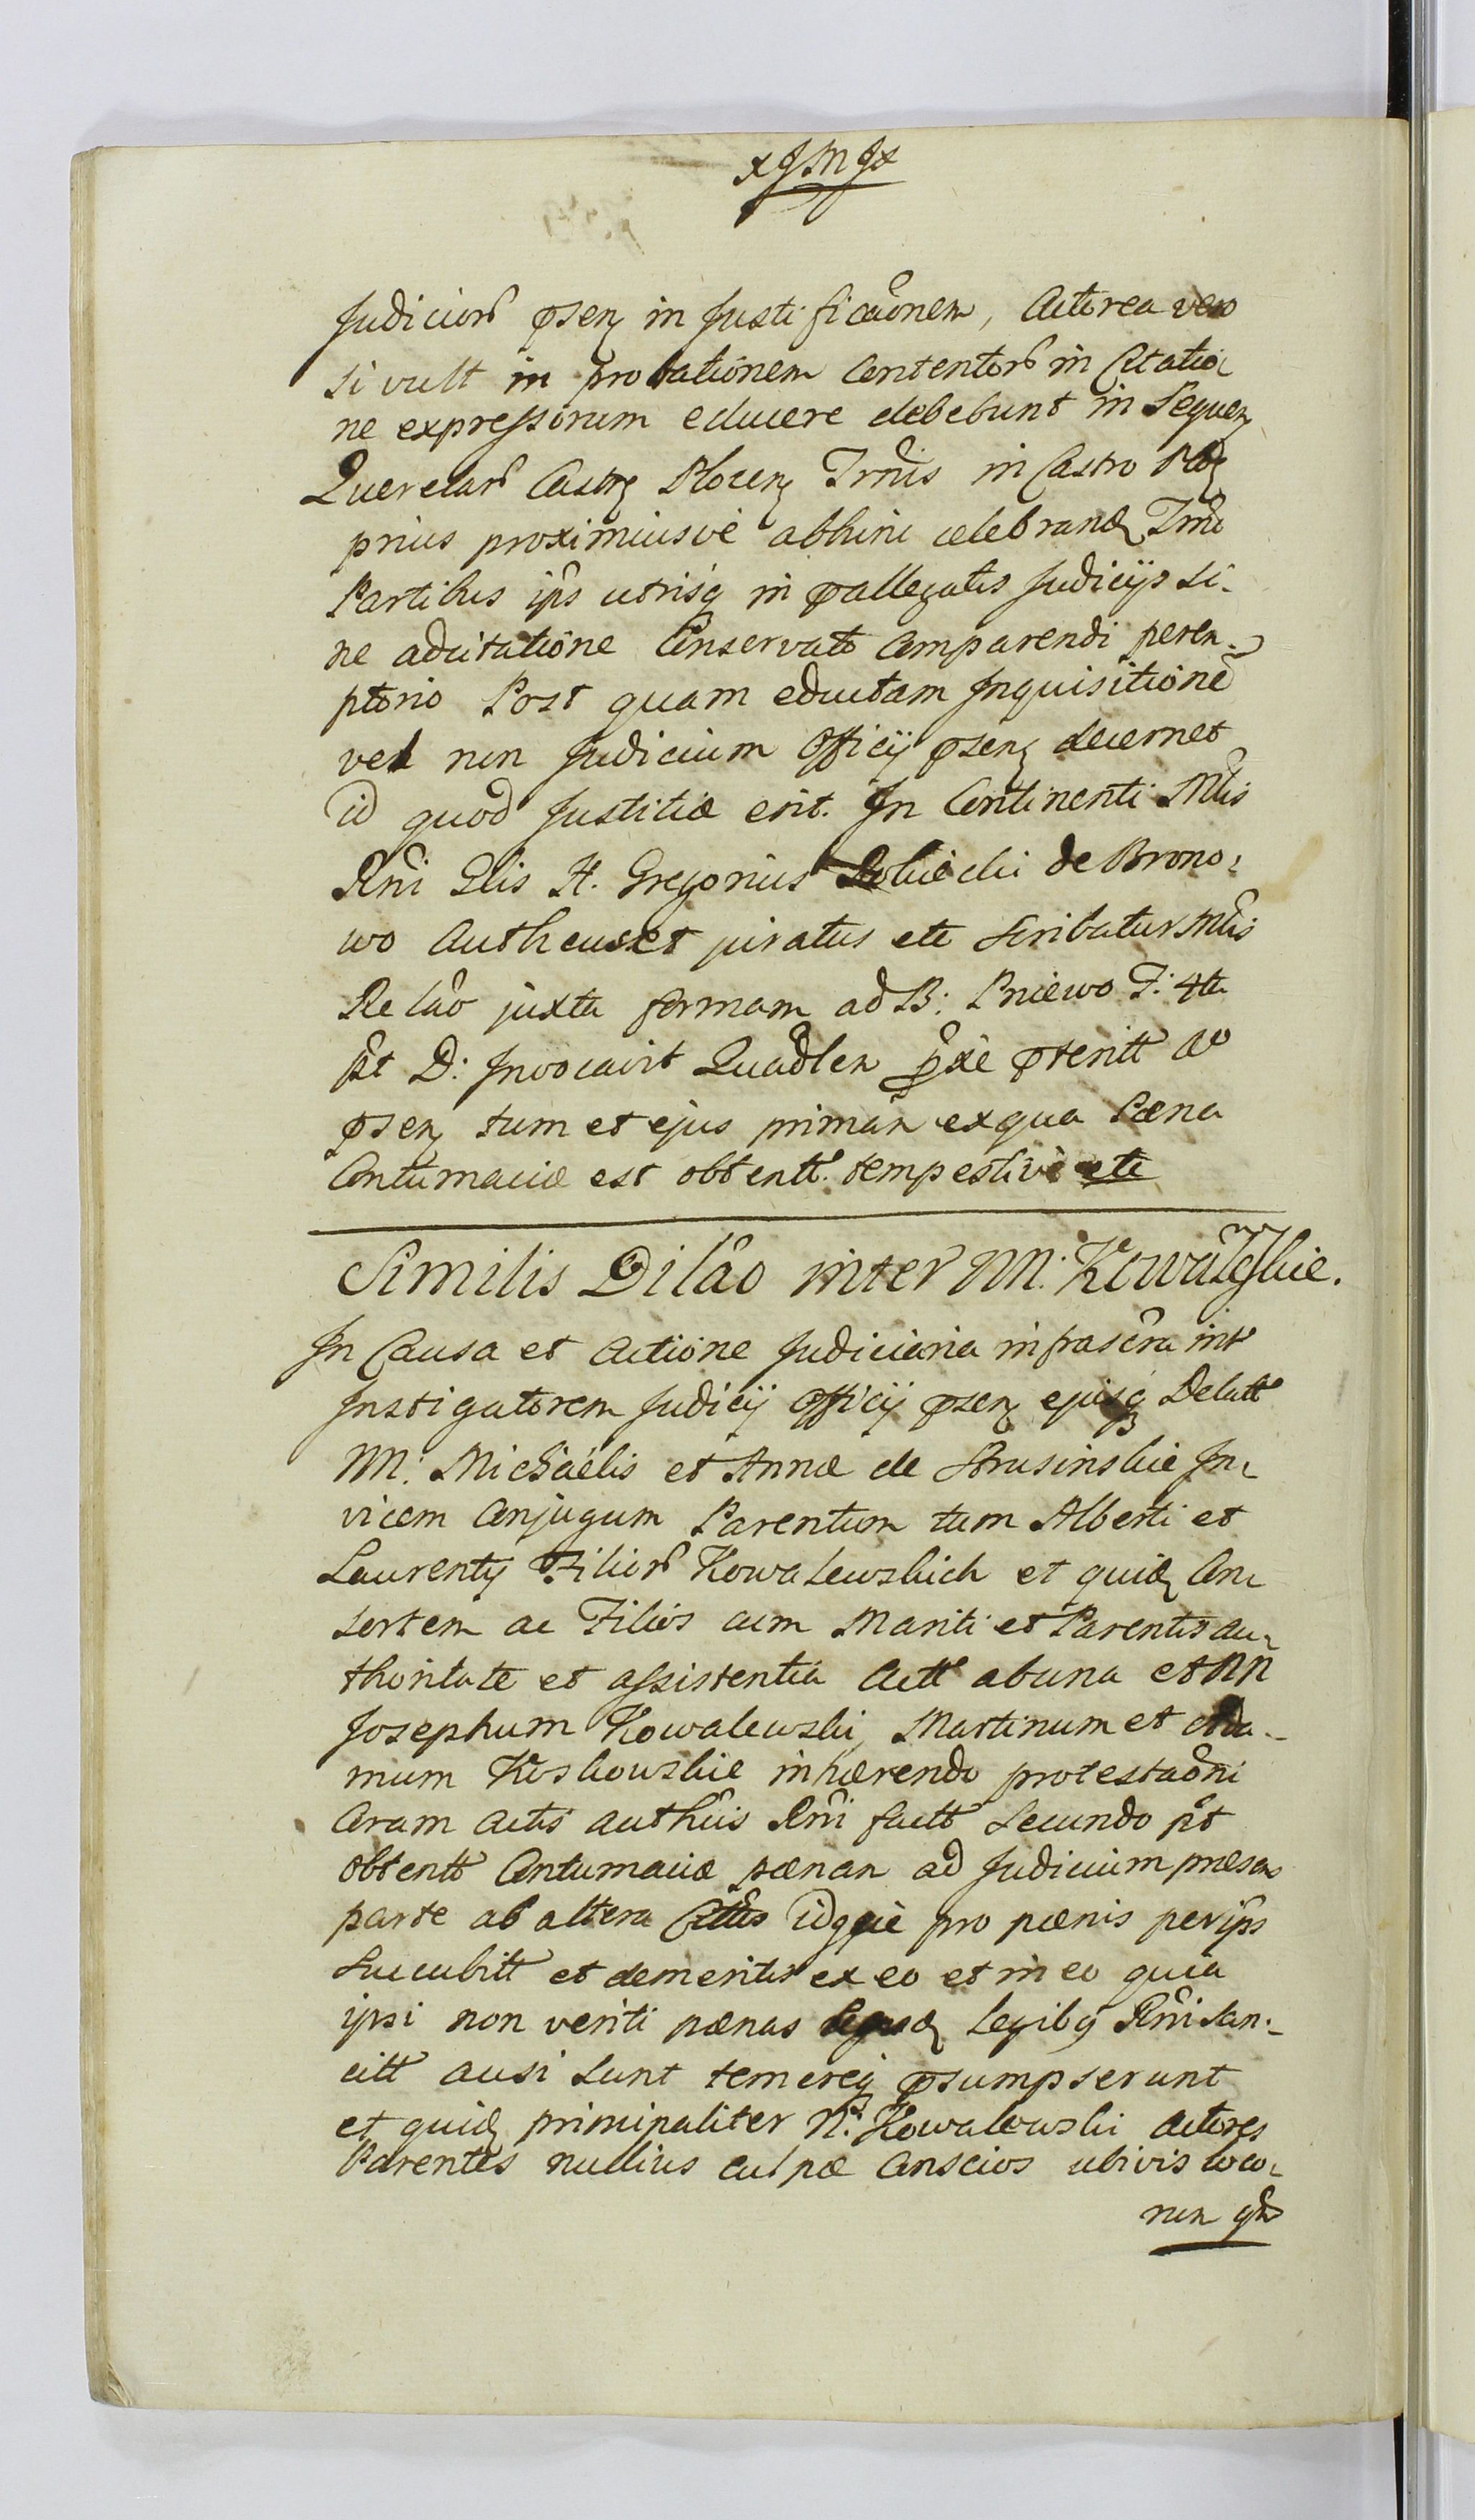 x J M J x
Judicior psen in Justificãonem, Actorea vero
si vult in probationem Contentor in Citatio
ne expressorum educere debebunt in Sequen
Querelar Castr Plocen Trmis in Castro Ploc
prius proximiusve abhinc celebrand Trmo
Partibus ips utrisq in pallegatis Judicijs si-
ne adcitatione Conservato Comparendi perem-
ptorio Post quam eductam Inquisitione
vel non Judicium Officij psen decernet
id quod Justitiæ erit. In Continenti Mtis
Rni Glis H. Gregorius de Brono-
wo Authen et juratus etc Scribatur Mtis
Relao juxta formam ad B: Pniewo F. 4ta
pt D: Invocavit Quadlen pxe pteritt ao
psen tum et ejus primam ex qua Pæna
Contumaciæ est obtentt. tempestive etc
Similis Dilão inter M: Kowalewskie.
In Causa et Actione Judiciaria infrascra int
Instigatorem Judicij Officij psen ejusq Delatt
M: Michaelis et Annæ de Strusinskie In-
vicem Conjugum Parentum tum Alberti et
Laurentij Filior Kowalewskich et quid Con-
sortem ac Filios cum Mariti et Parentis au-
thoritate et assistentia Actt ab una et NN
Josephum Kowalewski, Martinum et Ada-
mum Koskowskie inhærendo protestaoni
Coram Actis Authis Rni factt Secundo pt
obtentt Contumaciæ pænam ad Judicium præsens
parte ab altera Cittos idque pro pænis per ips
Succubitt et demeritis ex eo et in eo quia
ipsi non veriti pænas Legibq Rni San-
citt ausi sunt temereq psumpserunt
et quid principaliter N: Kowalewski Actores
Parentes nullius culpæ Conscios ubivis loco-
rum qn